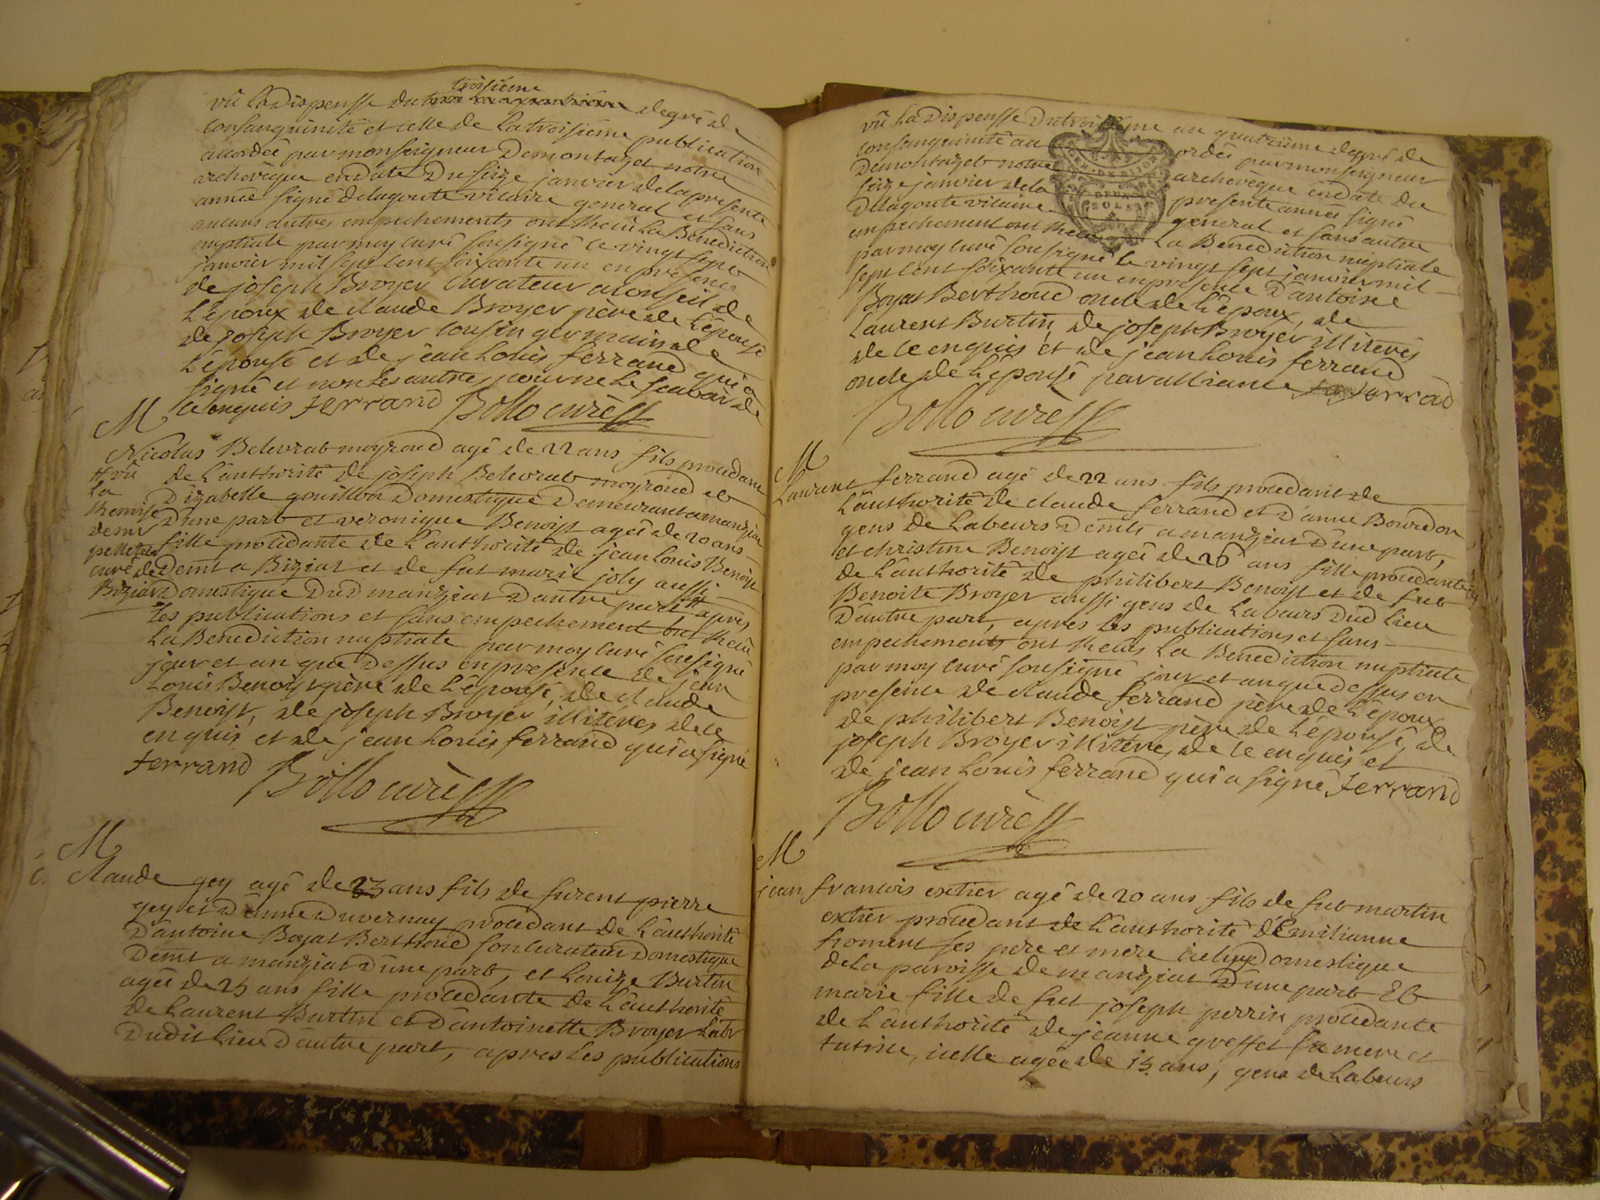 troisième
vû la dispense du degré de
consanguinité et celle de la troisième publication
accordée par monseigneur Demontazet notre
archeveque en date Du seize janvier de la presente
année signé delagoute vicaire general et sans
autres empechements ont recû la Bénédiction
nuptiale par moy curé soussigné le vingt sept
janvier mil sept cent soixante un en presence
de joseph Broyer curateur a conseil de
l'époux de claude Broyer père de l'épouse
de joseph Broyer cousin germain de
l'épouse et de jean Louis ferrand qui a
signé et non les autres pour ne le scavoir de
ce enquis ferrand Bollo curé
M
Nicolas moyroud agé de 22 ans fils procedant
de l'authorité de joseph moyroud et
D'izabelle gouillon Domestique Demeurant a manziat
D'une part et veronique Benoist agée de 20 ans
fille procedante de l'authorité de jean Louis Benoist
Demt a Biziat et de fut marie joly aussi
Domestique Dud manziat D'autre part après
les publications et sans empechement ont recu
La Bénédiction nuptiale par moy curé soussigné
jour et an que Dessus en presence de jean
Louis Benoist père de l'épouse, de claude
Benoist, de joseph Broyer illiterés de ce
enquis et de jean Louis ferrand qui a signé
ferrand Bollo curé
vû
la
Remise
de mr
curé de
Biziat
M
Claude gey agé de 23 ans fils de furent pierre
gey et D'anne Duvernay procedant de l'authorité
D'antoine Boyat Berthoud son curateur Domestique
Demt a manziat D'une part, et Louise Burtin
agée de 25 ans fille procedante de l'authorité
de Laurent Burtin et d'antoinette Broyer
Dudit Lieu d'autre part, apres les publications
vû la Dispense Du troisième au quatrième degré de
consanguinité accordée par monseigneur
Demontazet notre archevêque en date du
seize janvier de la presente année signé
Delagoute vicaire general et sans autre
empechement ont recu La Bénédiction nuptiale
par moy curé soussigné le vingt sept janvier mil
sept cent soixante un en presence D'antoine
Boyat Berthoud oncle de l'époux, de
Laurent Burtin, de joseph Broyer illiterés
de ce enquis et de jean Louis ferrand
oncle de l'épouse par alliance ferrand
Bollo curé
M
Laurent ferrand agé de 22 ans fils procedant de
l'authorité de claude ferrand et d'anne Bourdon
gens de Labeurs Demts a manziat D'une part,
et christine Benoist agée de 26 ans fille procedante
de l'authorité de philibert Benoist et de fut
Benoite Broyer aussi gens de Labeurs Dud Lieu
D'autre part, apres les publications et sans
empechements ont recus La Bénédiction nuptiale
par moy curé soussigné jour et an que dessus en
presence de claude ferrand père de l'époux
de philibert Benoist père de l'épouse, de
joseph Broyer illiterés, de ce enquis et
de jean Louis ferrand qui a signé ferrand
Bollo curé
M
jean francois extier agé de 20 ans fils de fut martin
extier procedant de l'authorité d'Emilianne
froment ses pere et mere Domestique
de la paroisse de manziat D'une part Et
marie fille de fut joseph perrin procedante
de l'authorité de jeanne greffet sa mere et
tutrice, icelle agée de 15 ans, gens de Labeurs